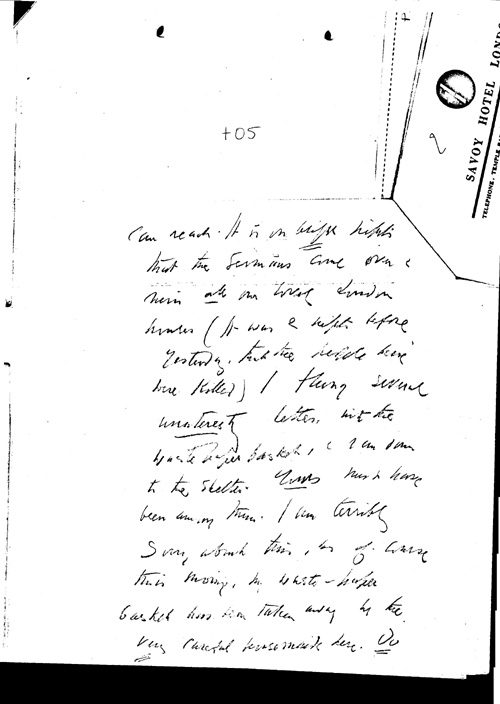 +05
2
SAVOY HOTEL LOND
TELEPHONE · TEMPLE
can reach. It is on bright nights
that the Germans come over &
ruin all our lovely London
houses (It was a night before
yesterday, that the people here
were killed) I flung several
letters into the
waste paper basket, & ran down
to the shelter. Yours must have
been among them. I am terribly
sorry about this, as of course
this morning, the waste-paper
basket has been taken away by the
very careful housemaids here. Do